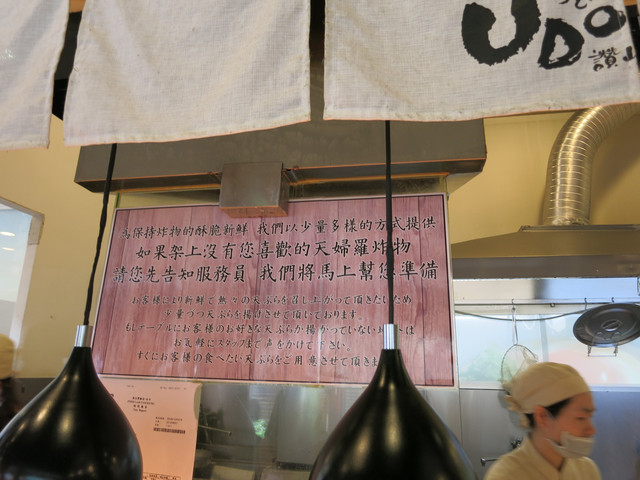 UDO
讃
為保持炸物的酥脆新鮮 我們以少量多樣的方式提供
如果架上沒有您喜歡的天婦羅炸物
請您先告知服務員 我們將馬上幫您準備
お客様により新鮮で熱々の天ぷらを召し上がって頂きたいため
少量づつ天ぷらを揚げさせて頂いております。
もしテーブルにお客様のお好きな天ぷらが揚がっていないときは
お気軽にスタッフまで声をかけて下さい。
すぐにお客様の食べたい天ぷらをご用意させて頂きま